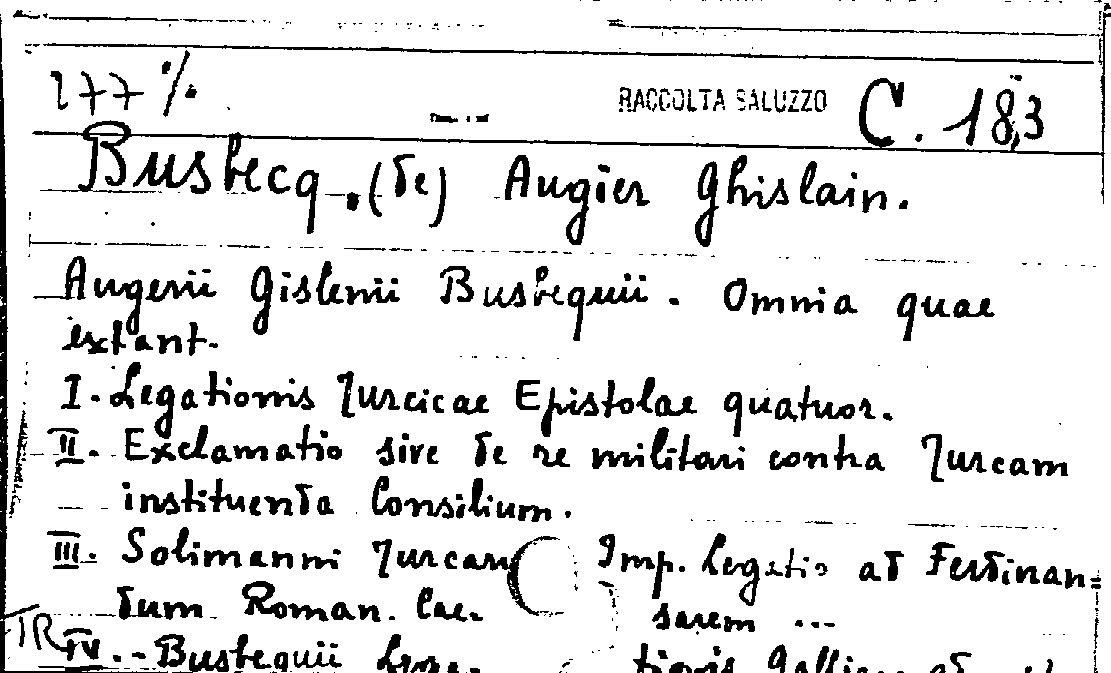 277 %
RACCOLTA SALUZZO C. 183
Busbecq. (de) Augier Ghislain.
Augerii Gislenii Busbequii. Omnia quae
extant.
I. Legationis Turcicae Epistolae quatuor.
II. Exclamatio sive de re militari contra Turcam
instituenda Consilium.
III. Solimanni Turcaru Imp. Legatio ad Ferdinan=
dum Roman. Cae. sarem ...
TR IV. - Busbequii